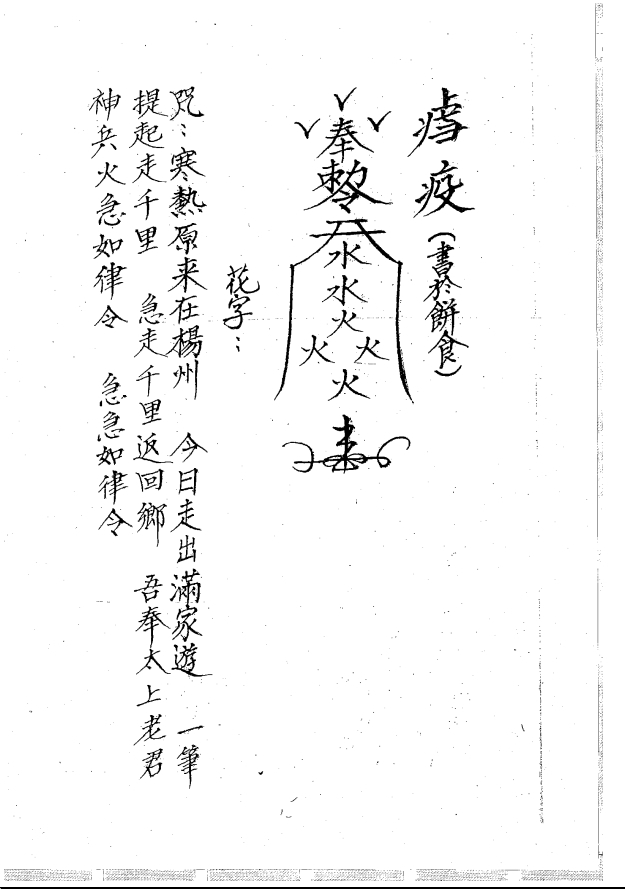 疫（書於餅食）
奉
勅令
水
水
火
火 火
火
花字：
咒：寒熱原来在楊州 今日走出滿家遊 一筆
提起走千里 急走千里返回鄉 吾奉太上老君
神兵火急如律令 急急如律令